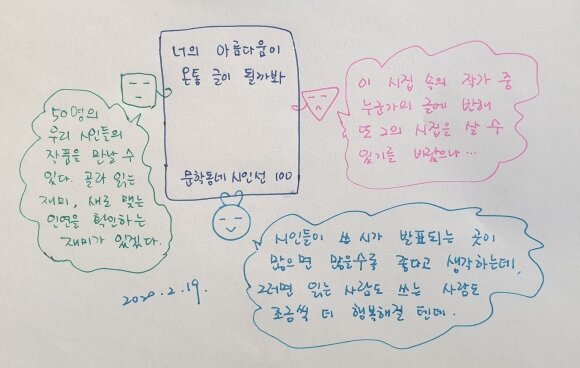 너의 아름다움이
온통 글이 될까봐
문학동네 시인선 100
50명의
우리 시인들의
작품을 만날 수
있다. 골라 읽는
재미, 새로 맺는
인연을 확인하는
재미가 있겠다.
이 시집 속의 작가 중
누군가의 글에 반해
또 그의 시집을 살 수
있기를 바람으나...
시인들이 쓴 시가 발표되는 곳이
많으면 많을수록 좋다고 생각하는데,
그러면 읽는 사람도 쓰는 사람도
조금씩 더 행복해질 텐데.
2020.2.19.